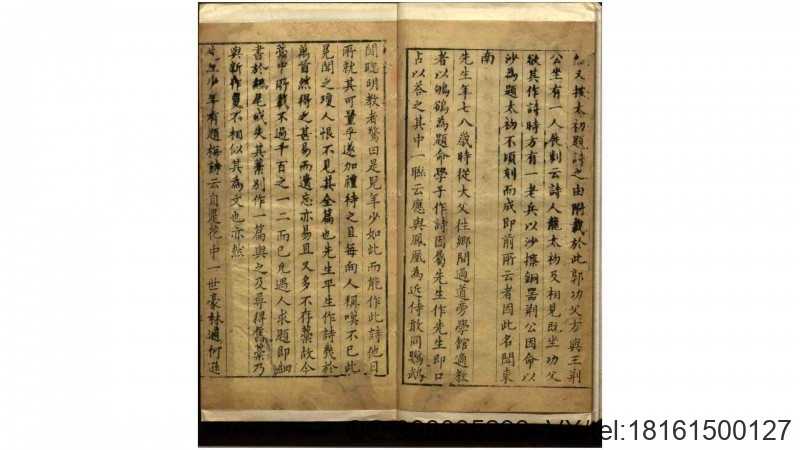 又按太初題詩之由附載於此郭功父方與王荆
公坐有一人展刺云詩人龍太初及相見既坐功父
欲其作詩時方有一老兵以沙擦銅器荆公因命以
沙為題太初不頃刻而成即前所云者因此名聞東
南
先生年七八歲時從大父往鄉間過道旁學館適教
者以鵓鴿為題命學子作詩因屬先生作先生即口
占以答之其中一聯云應與鳳凰為近侍敢同鸚鵡
聞聰明教者驚曰是兒年少如此而能作此詩他日
所就其可量乎遂加禮待之且每向人稱嘆不已此
見聞之瓊人恨不見其全篇也先生平生作詩幾於
萬首然得之甚易而遺忘亦易且又多不存藁故今
所載不過千百之一二而已凡遇人求題即細
書於紙尾或失其藁別作一篇與之及尋得舊藁乃
與新作夐不相似其為文也亦然
先生少年有題梅詩云自是花中一世豪林逋何遜
el:18161500127